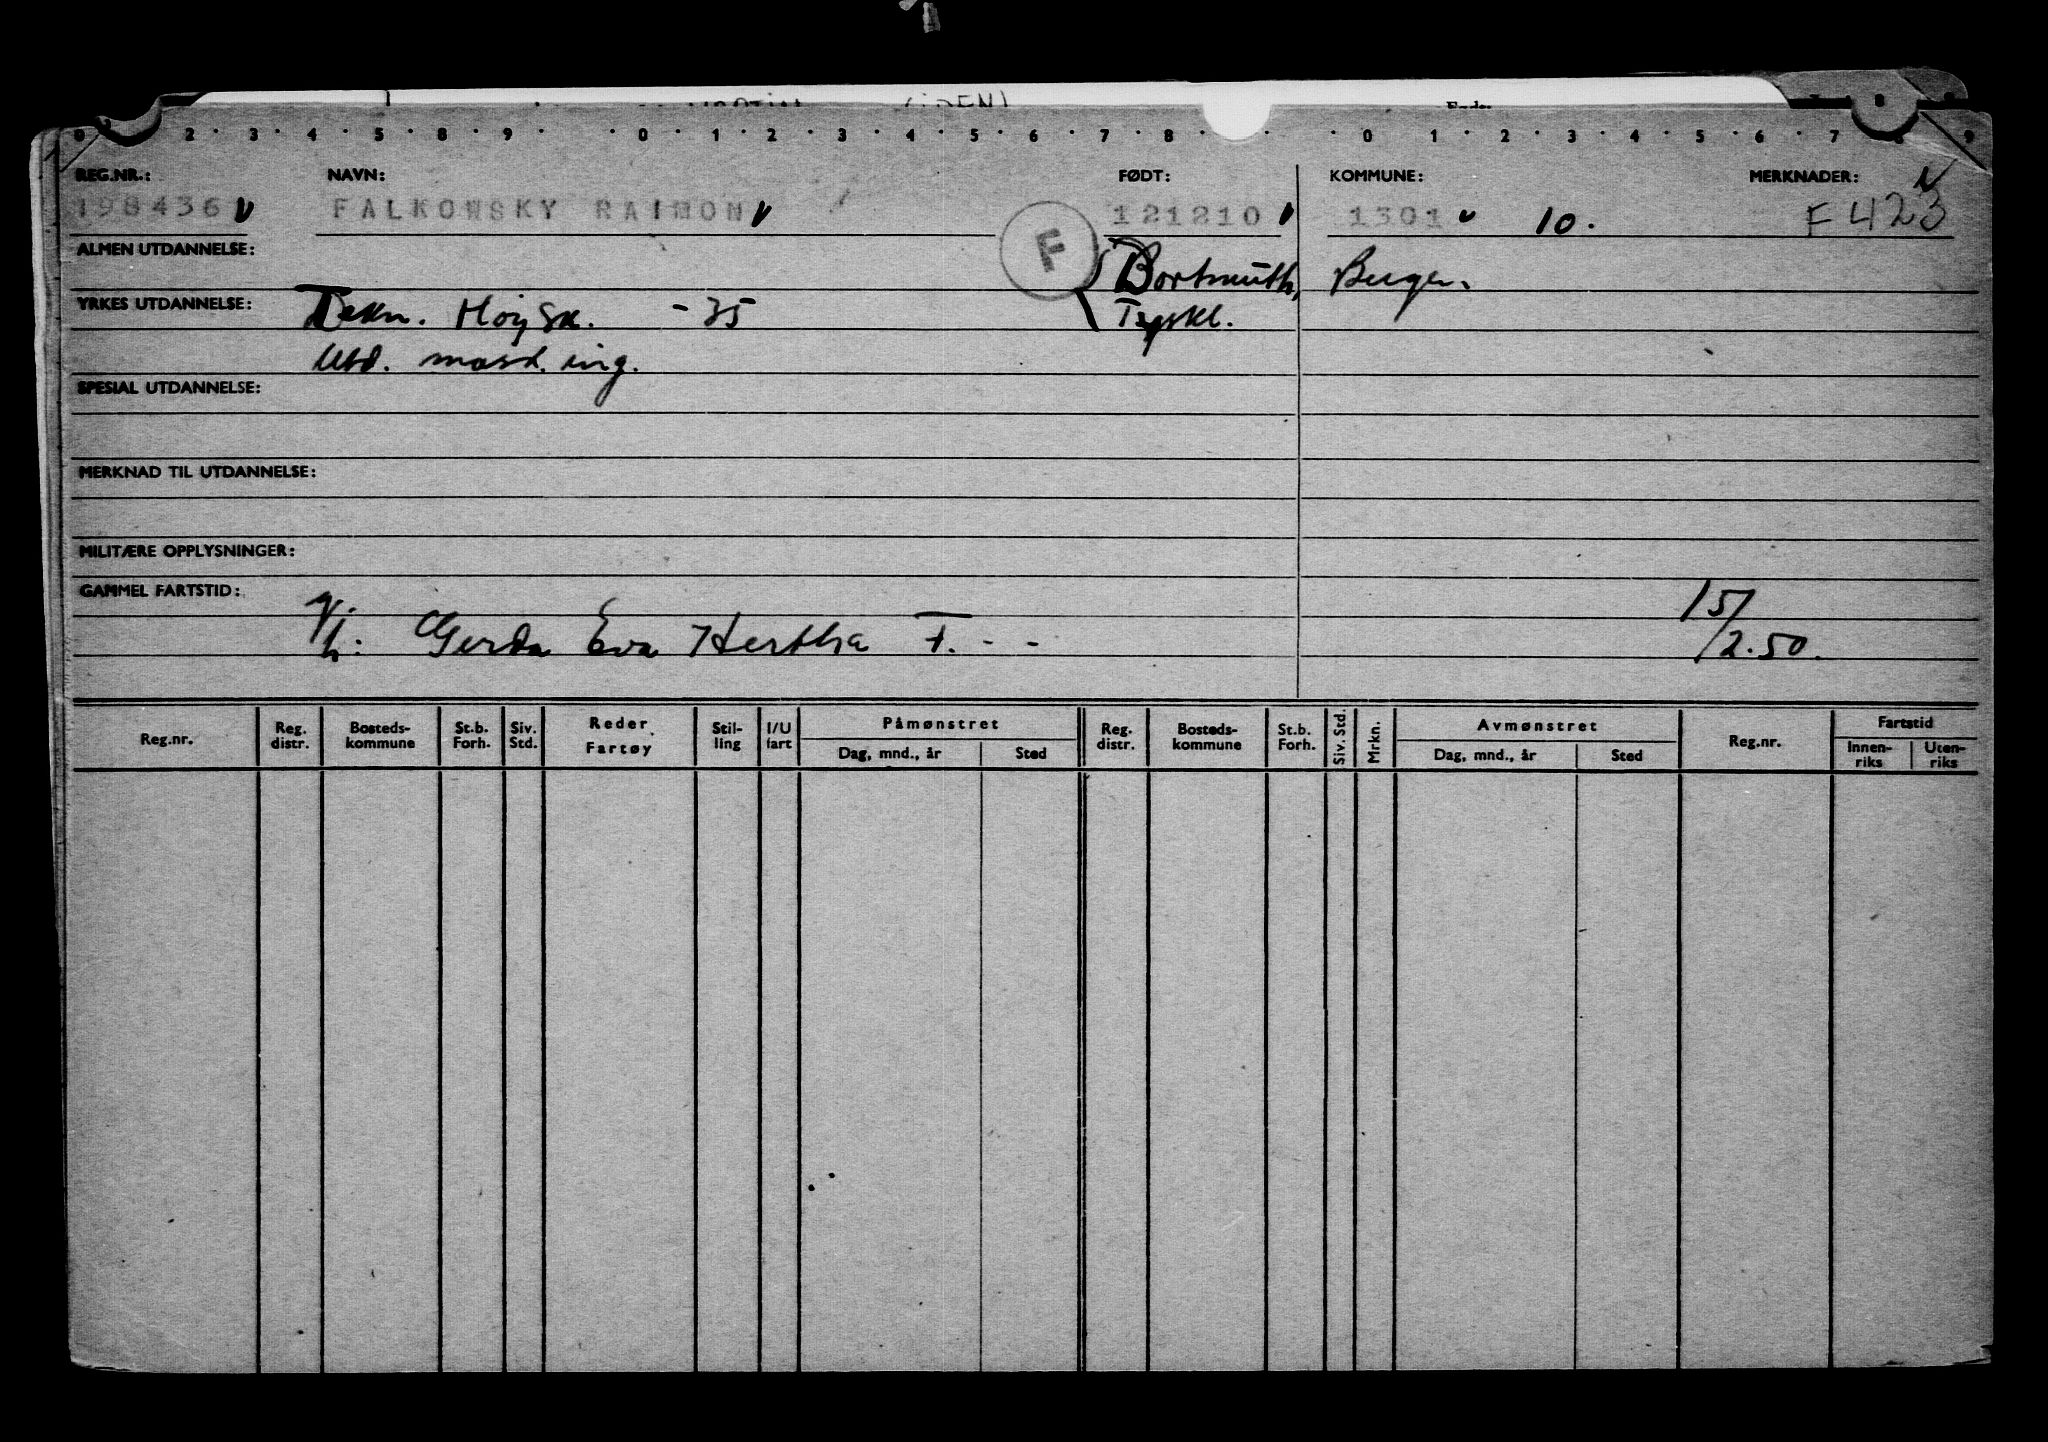 2 · 3 · 4 · 5 · 8 · 9 · · 0 · 1 · 2 · 3 · 4 · 5 · 6 · 7 · 8 · · 0 · 1 · 2 · 3 · 4 · 5 · 6 · 7 9
REG.NR.: NAVN: FØDT: KOMMUNE: MERKNADER:
198436 FALKOWSKY RAIMON 121210 1301 10. F 423
F
ALMEN UTDANNELSE:
Dortmuth, Bergen.
YRKES UTDANNELSE: Tekn. Høysk. - 35 Tyskl.
Utd. mask. ing.
SPESIAL UTDANNELSE:
MERKNAD TIL UTDANNELSE:
MILITÆRE OPPLYSNINGER:
GAMMEL FARTSTID: 15/
g/h: Gerda Eva Hertha F. - - /2.50.
Reg.nr. Reg. distr. Bosteds-kommune St.b. Forh. Siv. Std. Reder Fartøy Stil-ling I/U fart Påmønstret Reg. distr. Bosteds-kommune St.b. Forh. Siv. Std. Mrkn. Avmønstret Reg.nr. Fartstid
Dag, mnd., år Sted Dag, mnd., år Sted Innen-riks Uten-riks